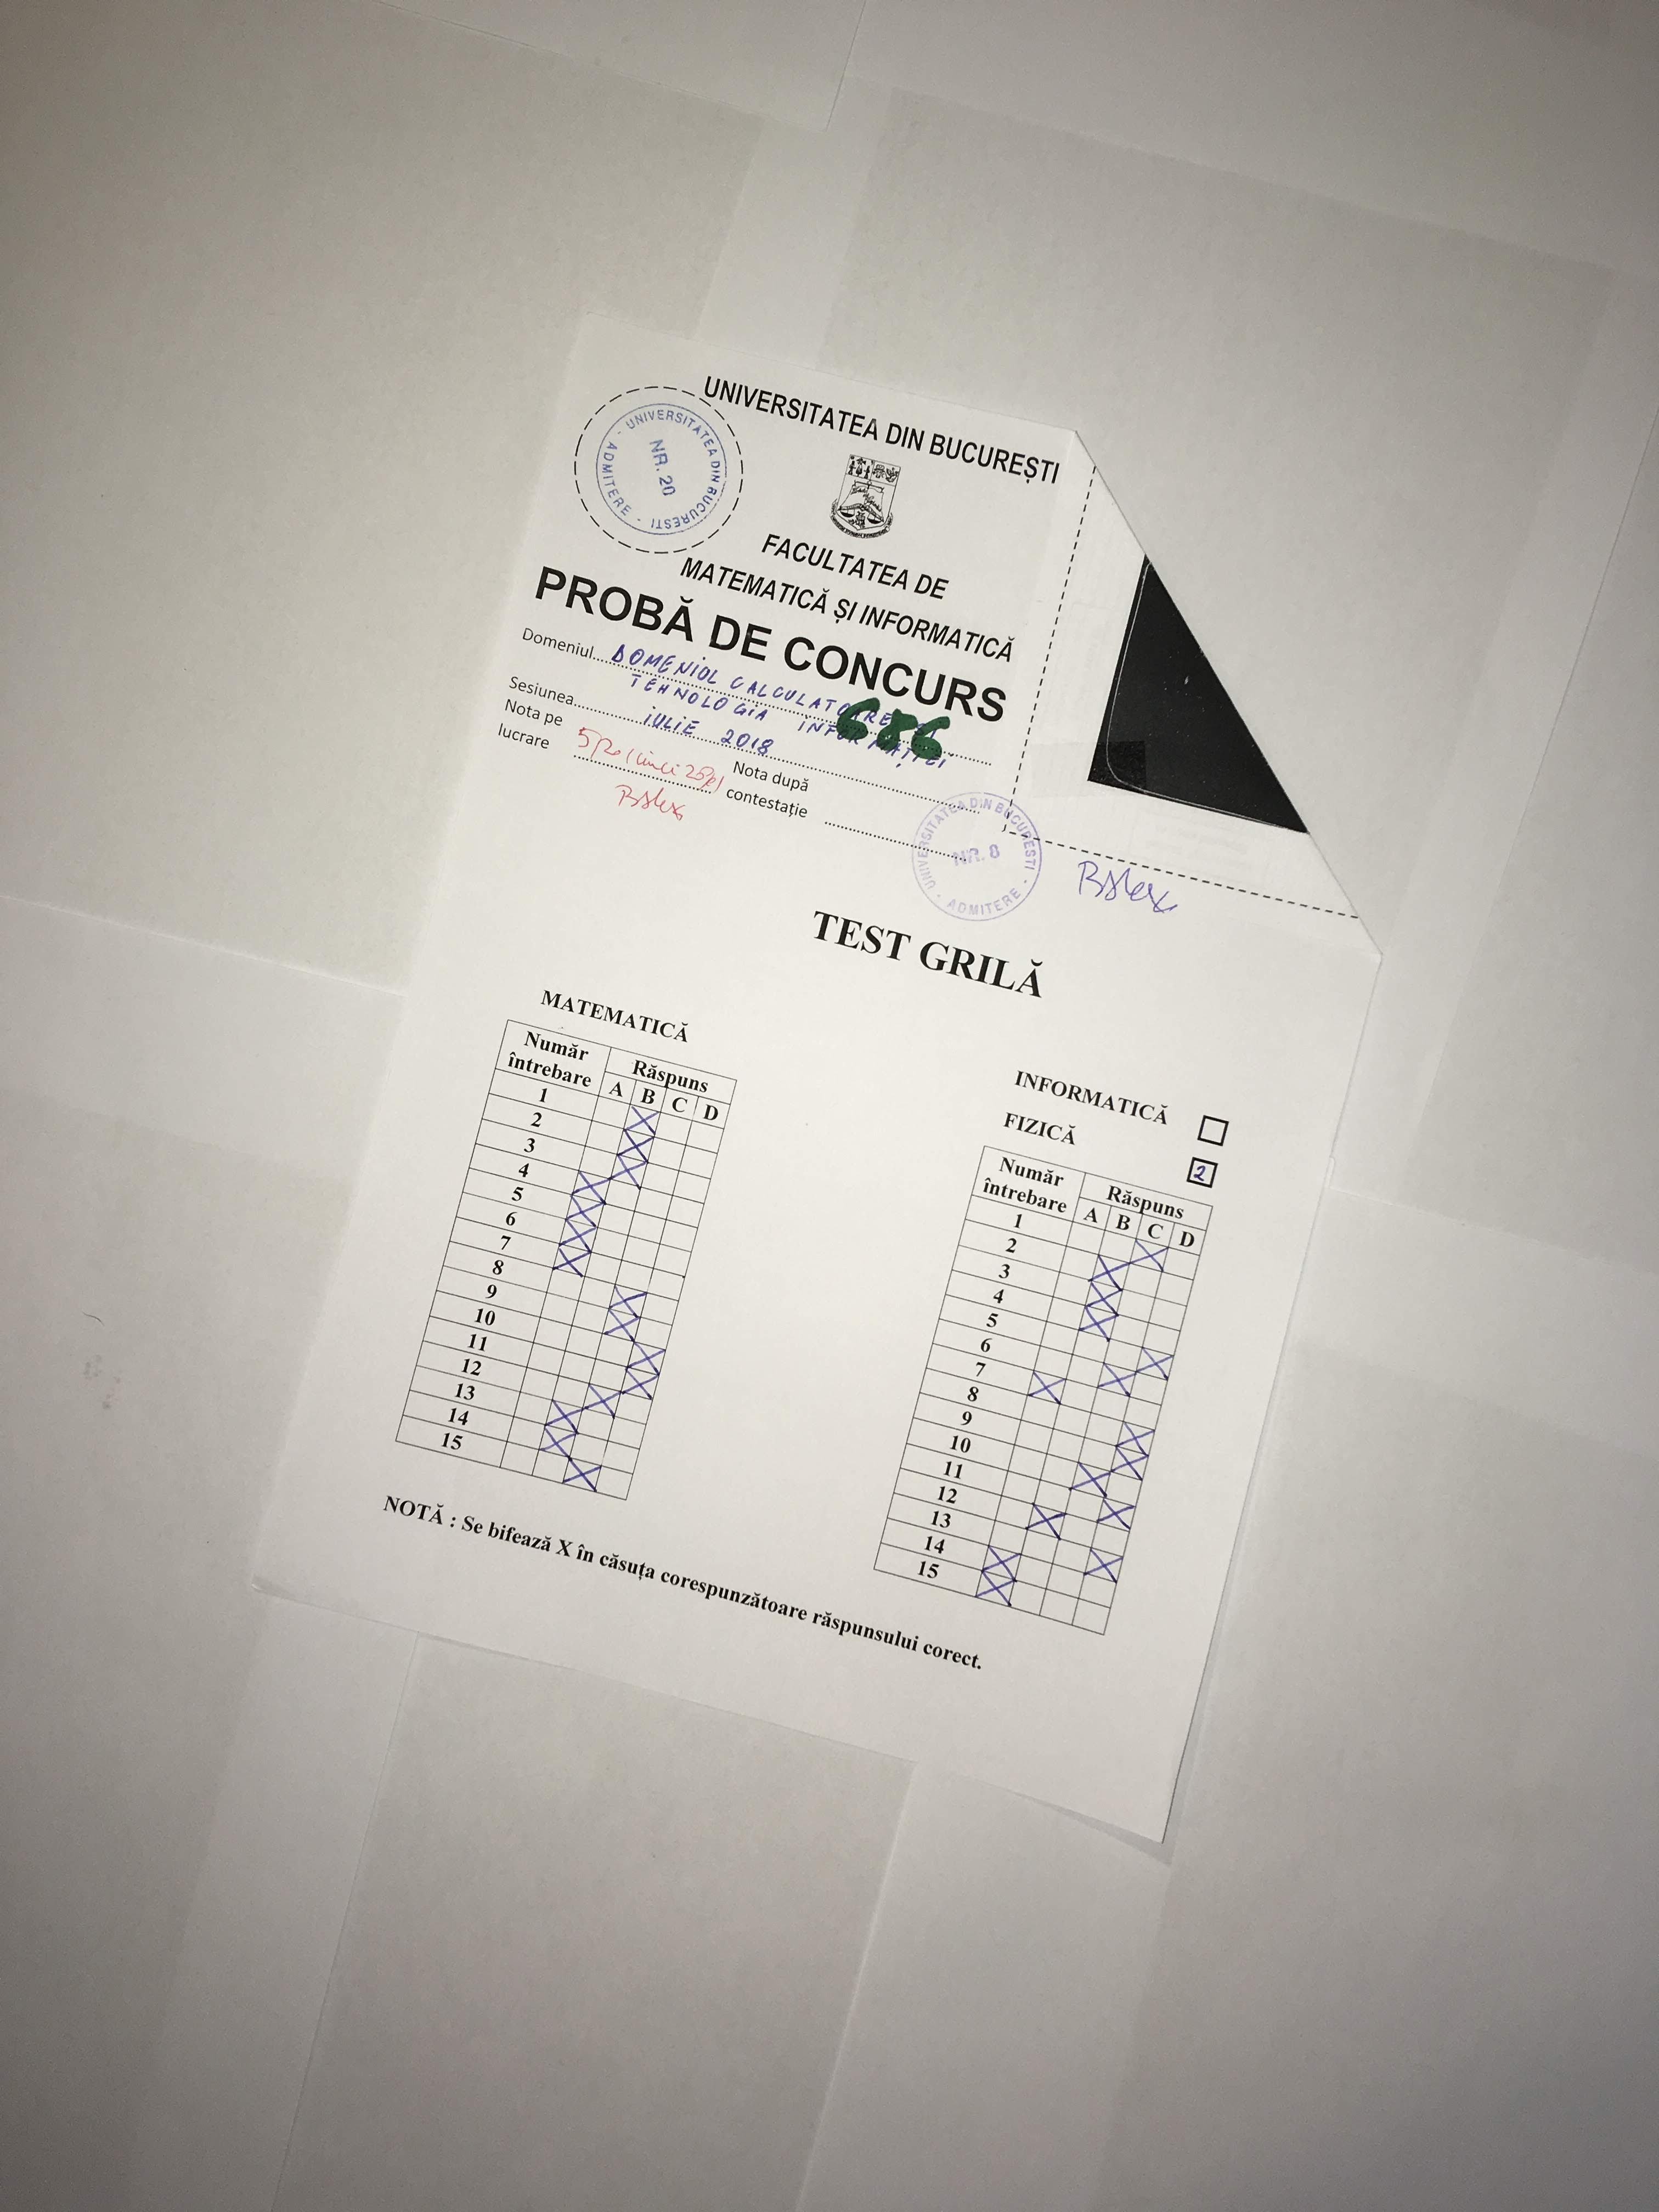 UNIVERSITATEA DIN BUCUREȘTI
UNIVERSITATEA DIN BUCURESTI - ADMITERE -
NR. 20
FACULTATEA DE
MATEMATICĂ ȘI INFORMATICĂ
PROBĂ DE CONCURS
Domeniul DOMENIUL CALCULATOARE
TEHNOLOGIA INFORMAȚIEI
686
Sesiunea IULIE 2018
Nota pe
lucrare
Nota după
contestație
UNIVERSITATEA DIN BUCURESTI - ADMITERE -
NR. 8
TEST GRILĂ
MATEMATICĂ
Număr
întrebare
Răspuns
A B C D
1
2
3
4
5
6
7
8
9
10
11
12
13
14
15
INFORMATICĂ
FIZICĂ 2
Număr
întrebare
Răspuns
A B C D
1
2
3
4
5
6
7
8
9
10
11
12
13
14
15
NOTĂ : Se bifează X în căsuța corespunzătoare răspunsului corect.